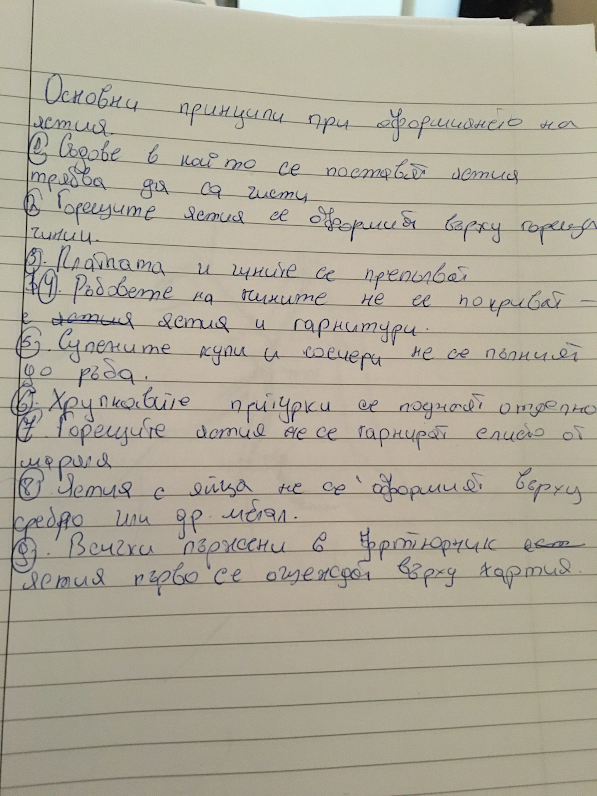 Основни принципи при оформянето на
ястия.
1. Съдове в който се поставят ястия
трябва да са чисти
2. Горещите ястия се оформят върху горещи
чинии.
3. Платата и чините се препълват
4. Ръбовете на чините не се покриват –
с ястия ястия и гарнитури.
5. Супените купи и сосиери не се пълният
до ръба.
6. Хрупкавите притурки се поднасят отделно
7. Горещите ястия не се гарнират с листо от
маруля
8. Ястия с яйца не се оформят върху
сребро или др. метал.
9. Всички пържени в фритюрник
ястия първо се оцеждат върху хартия.